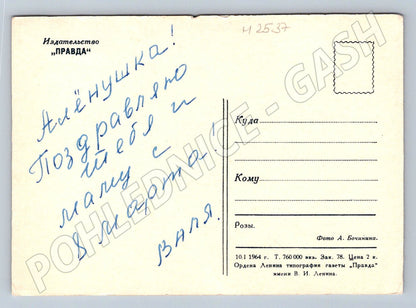 И 2537
Издательство
„ПРАВДА“
Алёнушка!
Поздравляю
тебя и
маму с
8 марта!
Валя.
Куда
Кому
Розы.
Фото А. Бочинина.
10.1 1964 г. Т. 760 000 экз. Зак. 78. Цена 2 к.
Ордена Ленина типография газеты „Правда“
имени В. И. Ленина.
POHLEDNICE - GASH